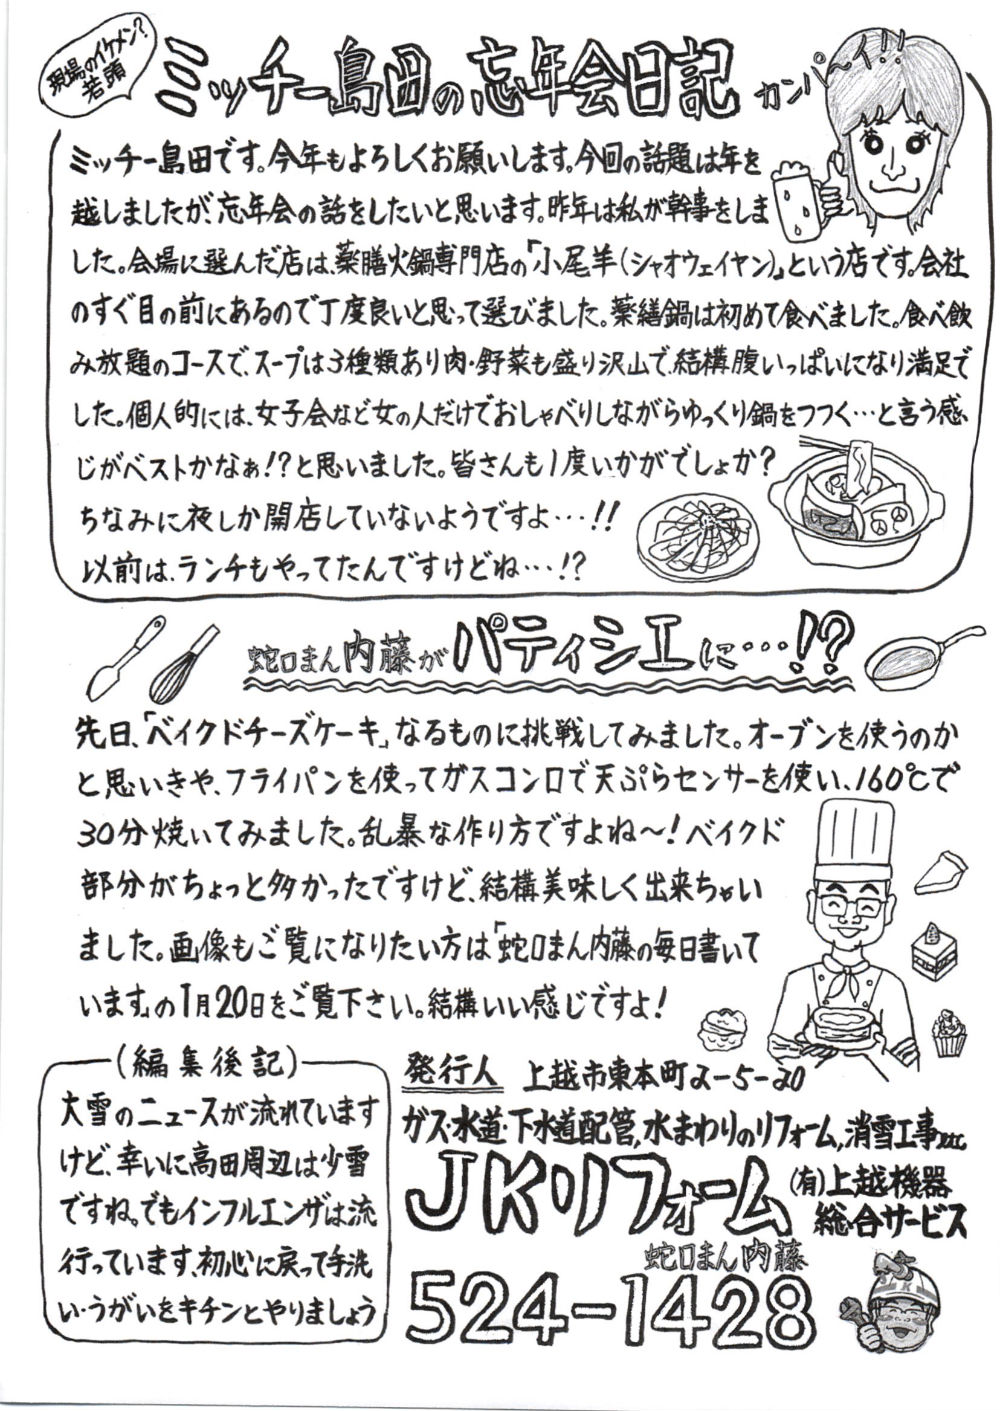 現場のイケメン?
若頭
ミッチー島田の忘年会日記
カンパ〜イ!!
ミッチー島田です。今年もよろしくお願いします。今回の話題は年を
越しましたが、忘年会の話をしたいと思います。昨年は私が幹事をしま
した。会場に選んだ店は、薬膳火鍋専門店の「小尾羊(シャオウェイヤン)」という店です。会社
のすぐ目の前にあるので丁度良いと思って選びました。薬繕鍋は初めて食べました。食べ飲
み放題のコースで、スープは3種類あり肉・野菜も盛り沢山で、結構腹いっぱいになり満足で
した。個人的には、女子会など女の人だけでおしゃべりしながらゆっくり鍋をつつく…と言う感
じがベストかなぁ!?と思いました。皆さんも1度いかがでしょか?
ちなみに夜しか開店していないようですよ…!!
以前は、ランチもやってたんですけどね…!?
蛇口まん内藤がパティシエに…!?
先日、「ベイクドチーズケーキ」なるものに挑戦してみました。オーブンを使うのか
と思いきや、フライパンを使ってガスコンロで天ぷらセンサーを使い、160℃で
30分焼いてみました。乱暴な作り方ですよね〜!ベイクド
部分がちょっと多かったですけど、結構美味しく出来ちゃい
ました。画像もご覧になりたい方は「蛇口まん内藤の毎日書いて
います」の1月20日をご覧下さい。結構いい感じですよ!
(編集後記)
大雪のニュースが流れています
けど、幸いに高田周辺は少雪
ですね。でもインフルエンザは流
行っています、初心に戻って手洗
い・うがいをキチンとやりましょう
発行人 上越市東本町2-5-20
ガス・水道・下水道配管,水まわりのリフォーム,消雪工事etc
JKリフォーム
(有)上越機器
総合サービス
蛇口まん内藤
524-1428